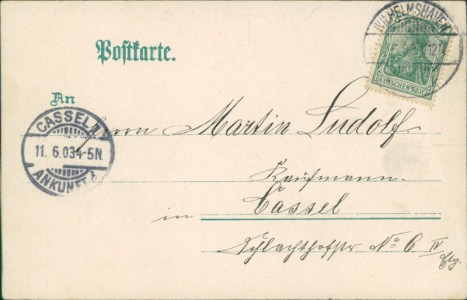 WILHELMSHAVEN
Postkarte.
DEUTSCHES REICH
An
CASSEL
11. 6.03 4-5N.
ANKUNFT
Herrn Martin Ludolf
Kaufmann.
in Cassel
Schlachthofstr No 6 IV